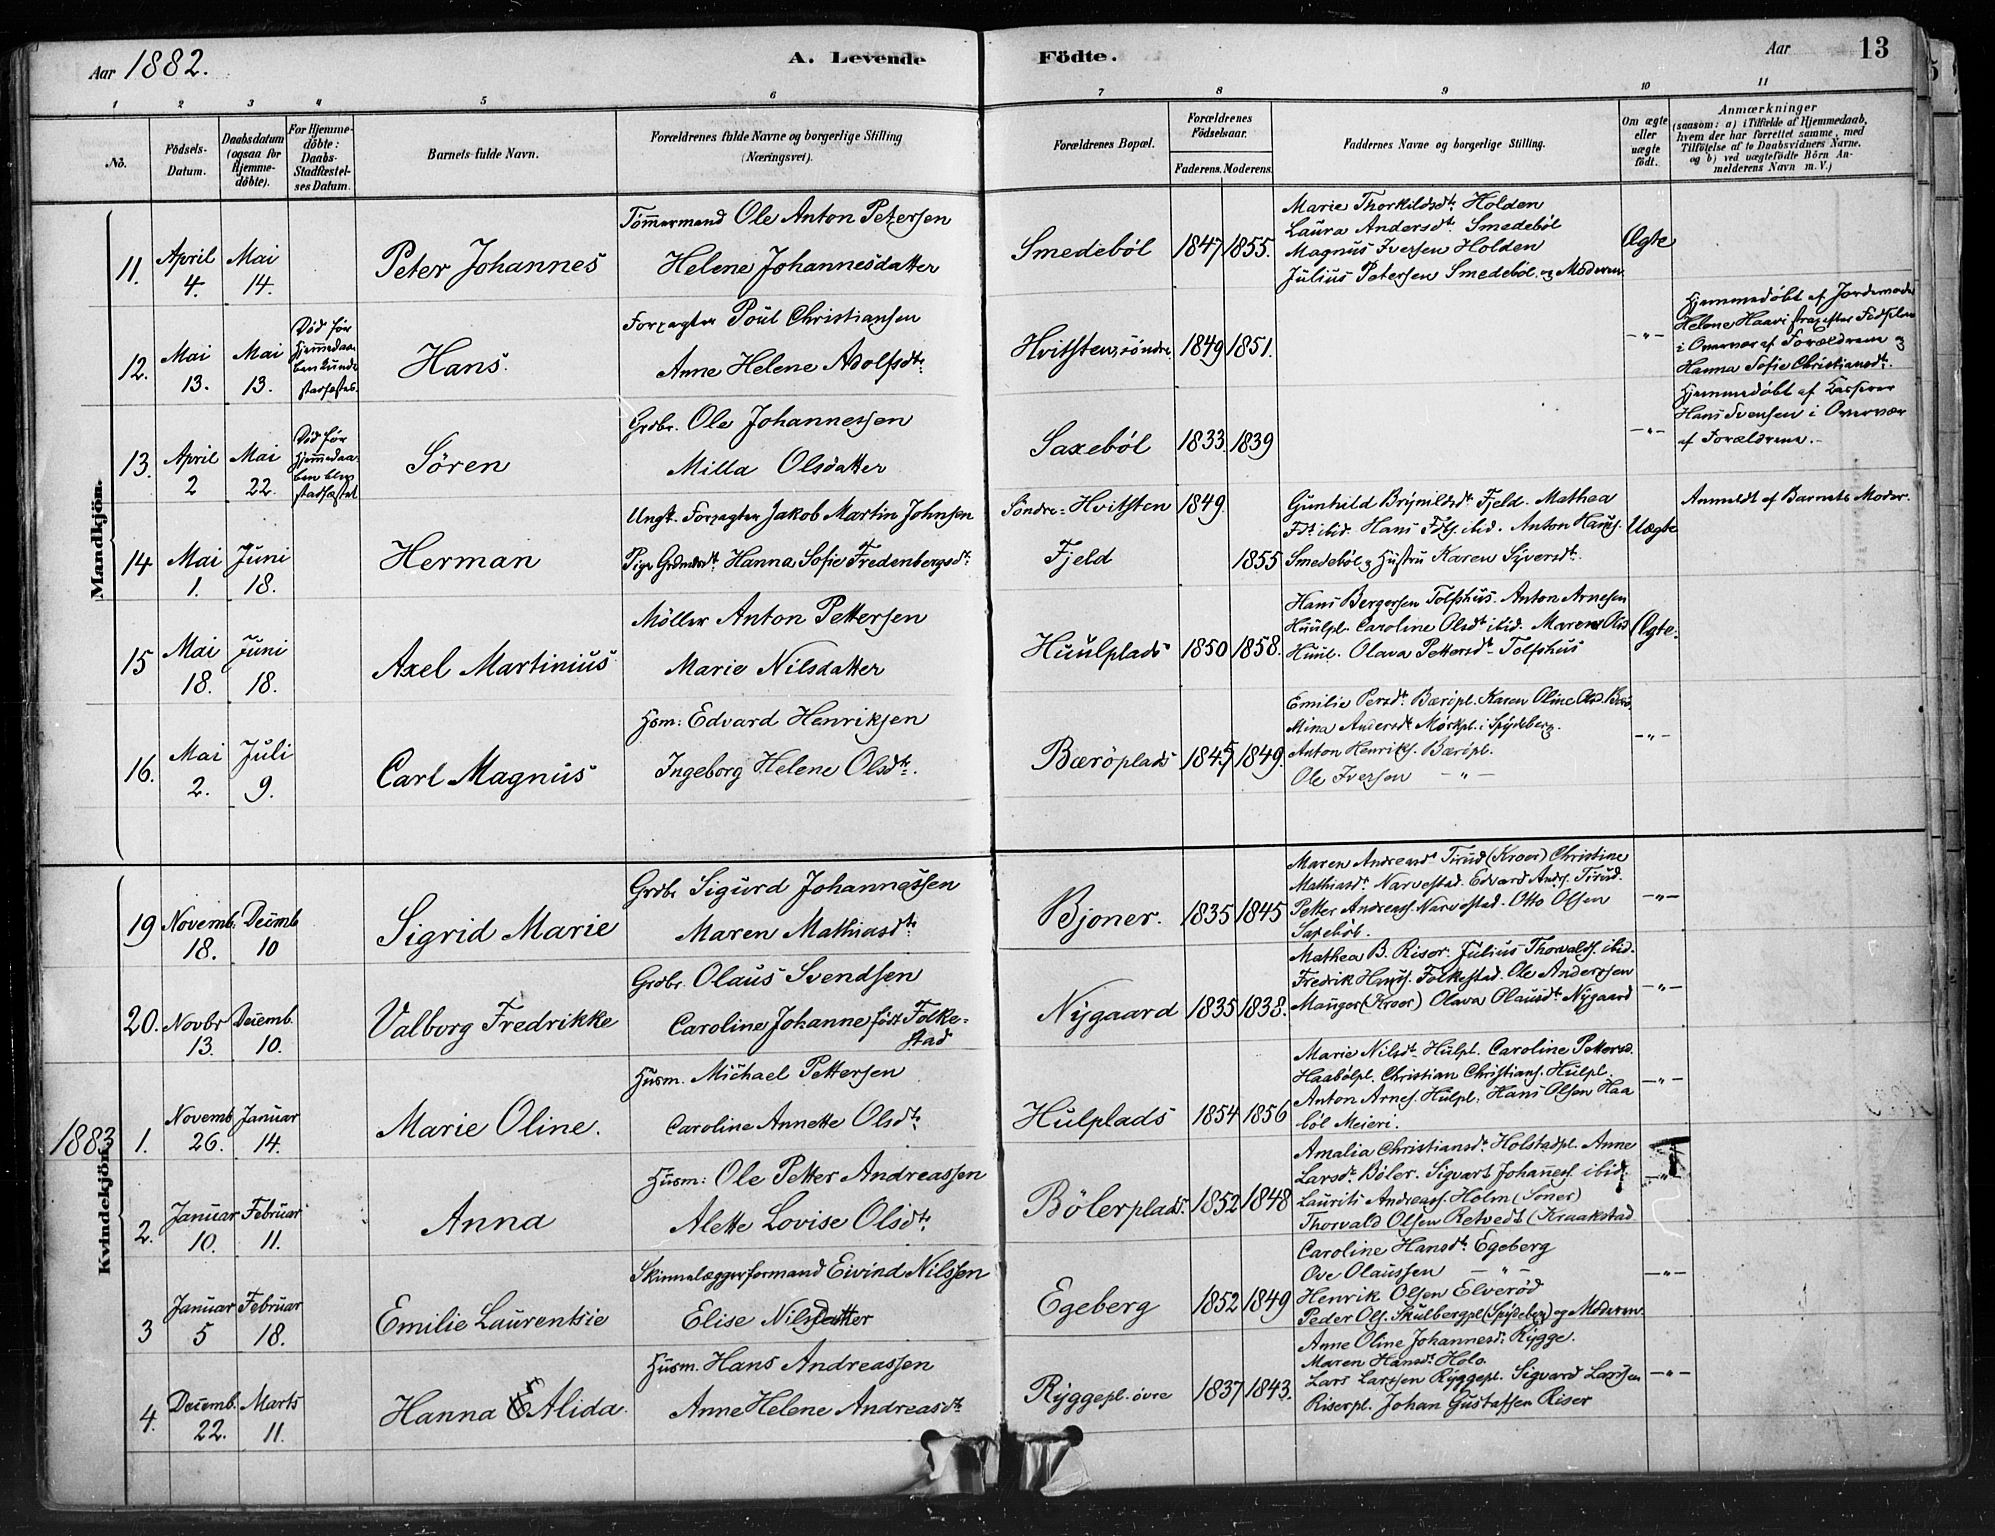 Aar 1882.
A. Levende Födte.
Aar 13
1 2 3 4 5 6 7 8 9 10 11
No.
Födsels-Datum.
Daabsdatum (ogsaa for Hjemme-döbte).
For Hjemme-döbte: Daabs-Stadfæstel-ses Datum.
Barnets fulde Navn.
Forældrenes fulde Navne og borgerlige Stilling (Næringsvei).
Forældrenes Bopæl.
Forældrenes Födselsaar.
Faderens. Moderens.
Faddernes Navne og borgerlige Stilling.
Om ægte eller uægte födt.
Anmærkninger
(saasom: a) i Tilfælde af Hjemmedaab, hvem der har forrettet samme, med Tilföielse af to Daabsvidners Navne. og b) ved uægtefödte Börn An-melderens Navn m. V.)
Mandkjön.
11. April 4. Mai 14.
Peter Johannes
Tömmermand Ole Anton Petersen
Helene Johannesdatter
Smedeböl 1847 1855.
Marie Thorkildsdt. Holden
Laura Andersdt. Smedeböl
Magnus Iversen Holden
Julius Petersen Smedeböl. og Moderen
Ægte
12. Mai 13. Mai 13.
Död för
Hjemmedaa-
ben kunde
stadfæstes.
Hans.
Forpagter Poul Christiansen
Anne Helene Adolfsdt.
Hvitsten, söndre 1849 1851.
-"-
Hjemmedöbt af Jordemoder
Helene Haavi strax efter Födslen
i Overvær af Forældrene og
Hanna Sofie Christiansdt.
13. April 2 Mai 22.
Död för
Hjemmedaa-
ben blev
stadfæstet
Sören
Grdbr. Ole Johannessen
Milla Olsdatter
Saxeböl 1833. 1839
-"-
Hjemmedöbt af
Hans Svensen i Overvær
af Forældrene.-
14 Mai 1. Juni 18.
Herman
Ungk. Forpagter Jakob Martin Johnsen
Pige Hanna Sofie Fredenbergsdt.
Söndre-Hvitsten 1849.
Fjeld 1855
Gunhild Brynildsdt. Fjeld. Mathea
Fdt. ibid. Hans Fdts. ibid. Anton Hans.
Smedeböl og Hustru Karen Syversdt.
Uægte
Anmeldt af Barnets Moder.
15 Mai 18. Juni 18.
Axel Martinius
Möller Anton Pettersen
Marie Nilsdatter
Huulplads 1850 1858.
Hans Bergersen Tolfshus. Anton Arnesen
Huulpl. Caroline Olsdt. ibid. Maren Ols
Huul. Olava Pettersdt. Tolfshus
Ægte.
16. Mai 2. Juli 9.
Carl Magnus
Hsm: Edvard Henriksen
Ingeborg Helene Olsdt.
Bæröplads 1849.
Emilie Persdt. Bæröpl. Karen Oline
Mina Andersdt. Mörkpl. i Spydeberg.
Anton Henriks. Bæröpl.
Ole Iversen -"-
-"-
Kvindekjön.
19 Novemb. 18. Decemb 10
Sigrid Marie
Grdbr Sigurd Johannessen
Maren Mathiasdt.
Bjoner. 1835 1845
Maren Andreasdt. Tirud (Kroer) Christine
Mathiasdt. Narvestad. Edvard Ands. Tirud.
Petter Andreas. Narvestad. Otto Olsen
Saxeböl.
-"-
20. Novbr 13. Decemb. 10.
Valborg Fredrikke
Grdbr. Olaus Svendsen
Caroline Johanne födt Folke-
stad
Nygaard 1835 1838.
Mathea B. Riser. Julius Thorvalds. ibid.
Fredrik Hans. Folkestad. Ole Anderssen
Mauger (Kroer) Olava Olausdt. Nygaard
-"-
1883
1. Novemb 26. Januar 14.
Marie Oline.
Husm. Michael Pettersen
Caroline Annette Olsdt.
Hulplads 1854 1856
Marie Nilsdt. Hulpl. Caroline Pettersd.
Haabölpl. Christian Christians. Hulpl.
Anton Arnes. Hulpl. Hans Olsen Haa
böl Meieri.
-"-
2. Januar 10. Februar 11.
Anna
Husm: Ole Petter Andreassen
Alette Lovise Olsdt.
Bölerplads. 1852 1848
Amalia Christiansdt. Holstadpl. Anne
Larsdt. Böler. Sigvart Johannes. ibid.
Laurits Andreass. Holm (Soner)
Thorvald Olsen Retvedt (Kraakstad
-"-
3 Januar 5 Februar 18.
Emilie Laurentsie
Skinnelæggerformand Eivind Nilssen
Elise Nilsdatter
Egeberg 1852 1849
Caroline Hansdt. Egeberg
Ove Olaussen -"-
Henrik Olsen Elveröd
Peder Ols. Skulbergpl (Spydeberg) og Moderen.
-"-
4. Decemb. 22. Marts 11.
Hanna Alida.
Husm. Hans Andreassen
Anne Helene Andreasdt.
Ryggepl. övre 1837 1843.
Anne Oline Johannesd. Rygge.
Maren Hansdt. Holo.
Lars Larssen Ryggepl. Sigvard Larssen
Riserpl. Johan Gustafsen Riser
-"-